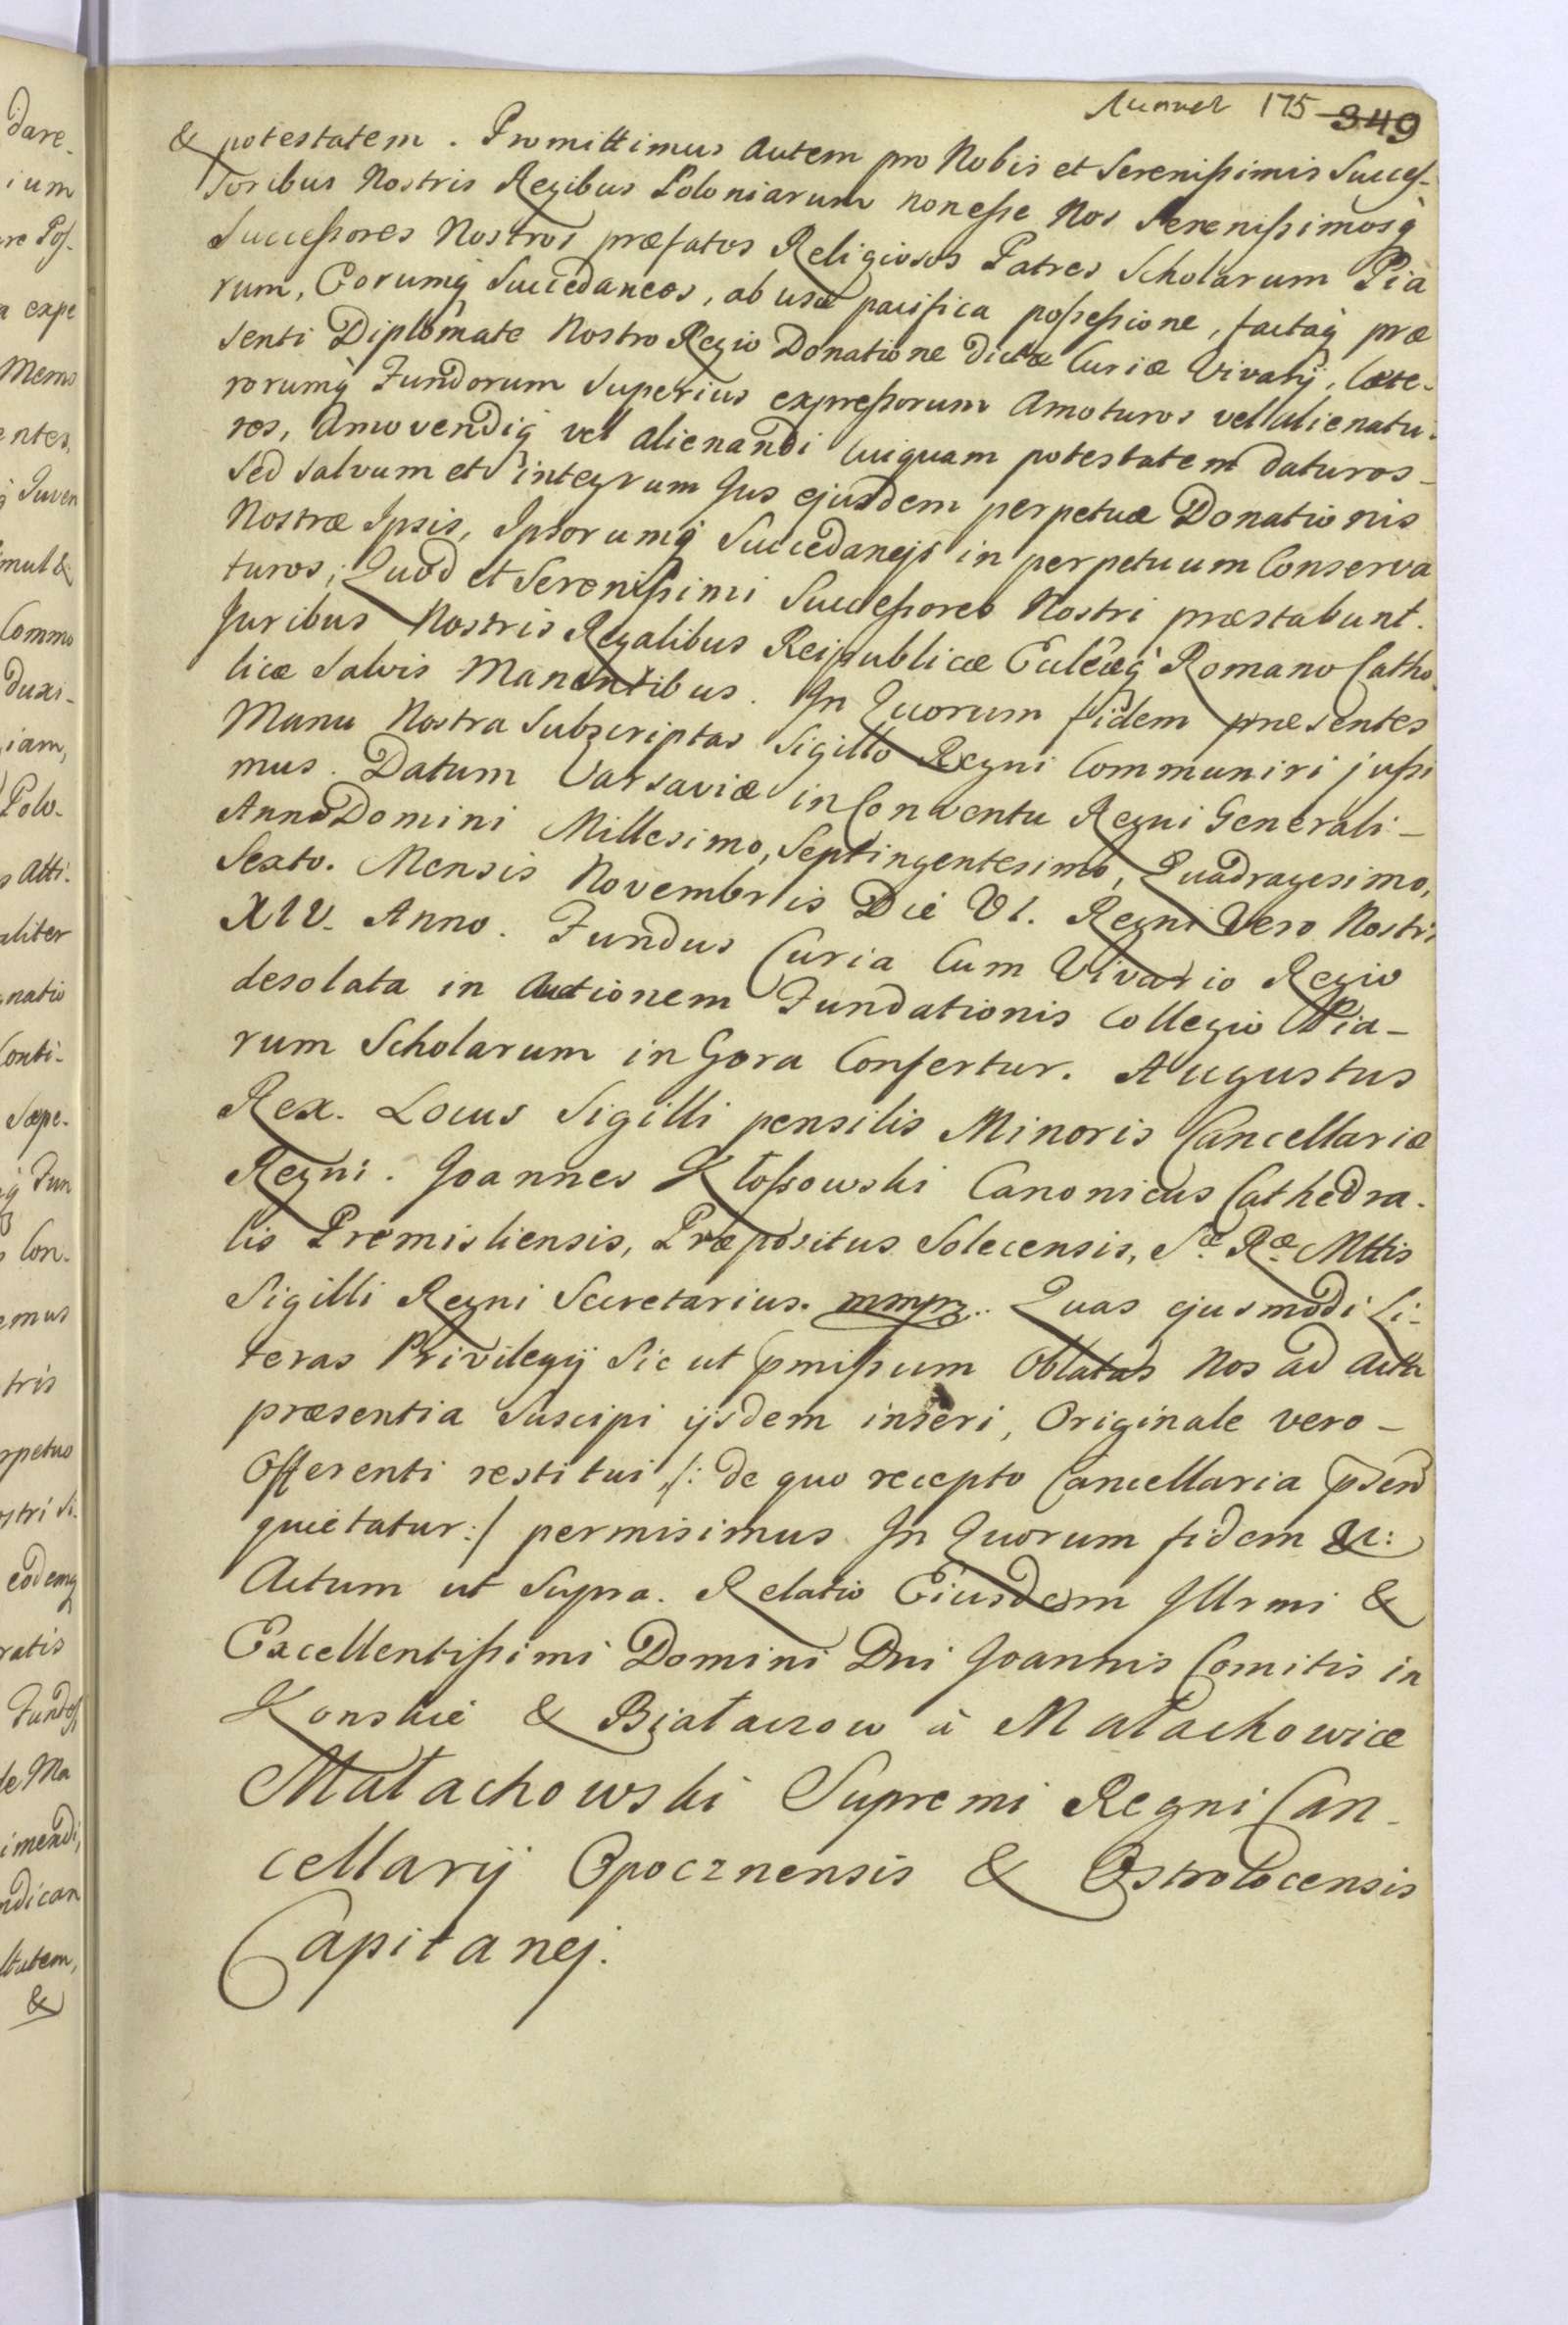 175 349
& potestatem. Promittimus autem pro Nobis et Serenißimis Succeß-
soribus Nostris Regibus Poloniarum non eße Nos Serenißimosq̀
Succeßores Nostros præfatos Religiosos Patres Scholarum Pia
rum, Eorumq̀ Succedaneos, ab usu pacifica poßeßione, factaq̀ præ
senti Diplomate Nostro Regio Donatione dictæ Curiæ Vivarij, Cæte-
rorumq̀ Fundorum Superius expreßorum amoturos vel alienatu-
ros, Amovendiq̀ vel alienandi cuiquam potestatem daturos-
Sed salvum et integrum Jus ejusdem perpetuæ Donationis
Nostræ Ipsis, Ipsorumq̀ Succedanejs in perpetuum Conserva
turos; Quod et Serenißimi Succeßores Nostri præstabunt.
Juribus Nostris Regalibus Reipublicæ Eccl̃æq̀ Romano Catho-
licæ Salvis Manentibus. In Quorum fidem præsentes
Manu Nostra Subscriptas Sigillo Regni Communiri jußi
mus. Datum Varsaviæ in Conventu Regni Generali-
Anno Domini Millesimo, Septingentesimo, Quadragesimo,
Sexto. Mensis Novembris Die VI. Regni Vero Nostri
XIV. Anno. Fundus Curia Cum Vivario Regio
desolata in Auctionem Fundationis Collegio Pia-
rum Scholarum in Gora Confertur. Augustus
Rex. Locus Sigilli pensilis Minoris Cancellariæ
Regni. Joannes Kłoßowski Canonicus Cathedra-
lis Premisliensis, Præpositus Solecensis, Sæ Ræ Mttis
Sigilli Regni Secretarius. mmpr. Quas ejusmodi Li-
teras Privilegij Sic ut p̃mißum Oblatas Nos ad acta
præsentia Suscipi ijsdem inseri, Originale vero-
Offerenti restitui /: de quo recepto Cancellaria p̃sen
quietatur :/ permisimus. In Quorum fidem &c:
Actum ut Supra. Relatio Eiusdem Illrmi &
Excellentißimi Domini Dni Joannis Comitis in
Konskie & Białaczow à Małachowice
Małachowski Supremi Regni Can-
cellarij Opocznensis & Ostrołocensis
Capitanej.